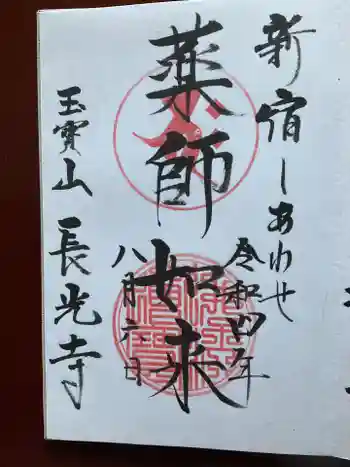 新宿しあわせ
薬師如来
令和四年
八月六日
玉寳山長光寺